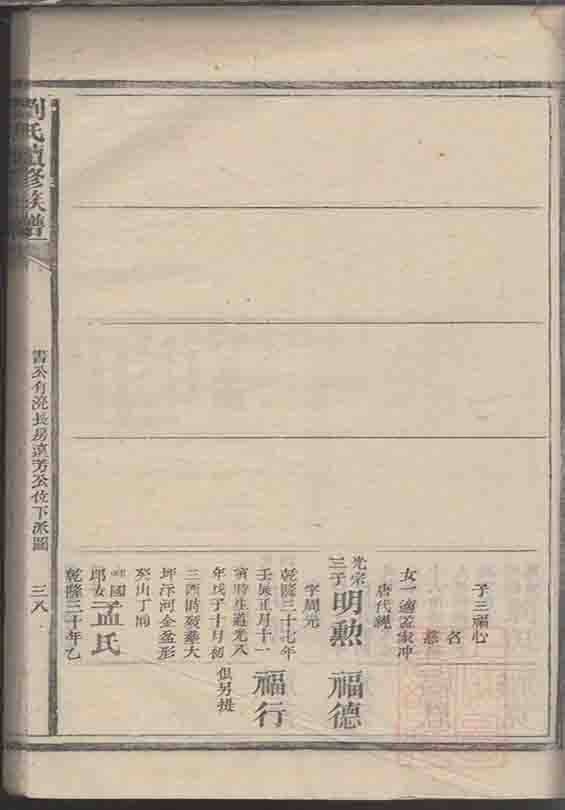 子三福心
名
慈
女一適孟家冲
唐代繩
光宗三子
明勲
福德
字周光
乾隆三十七年
壬辰正月十一
寅時生道光八
年戊子十月初
三酉時歿葬大
坪汙河金盆形
癸山丁向
福行
俱另提
孟氏
國
郎女
乾隆三十年乙
劉氏續修族譜
長房
芳公位下派圖
三八